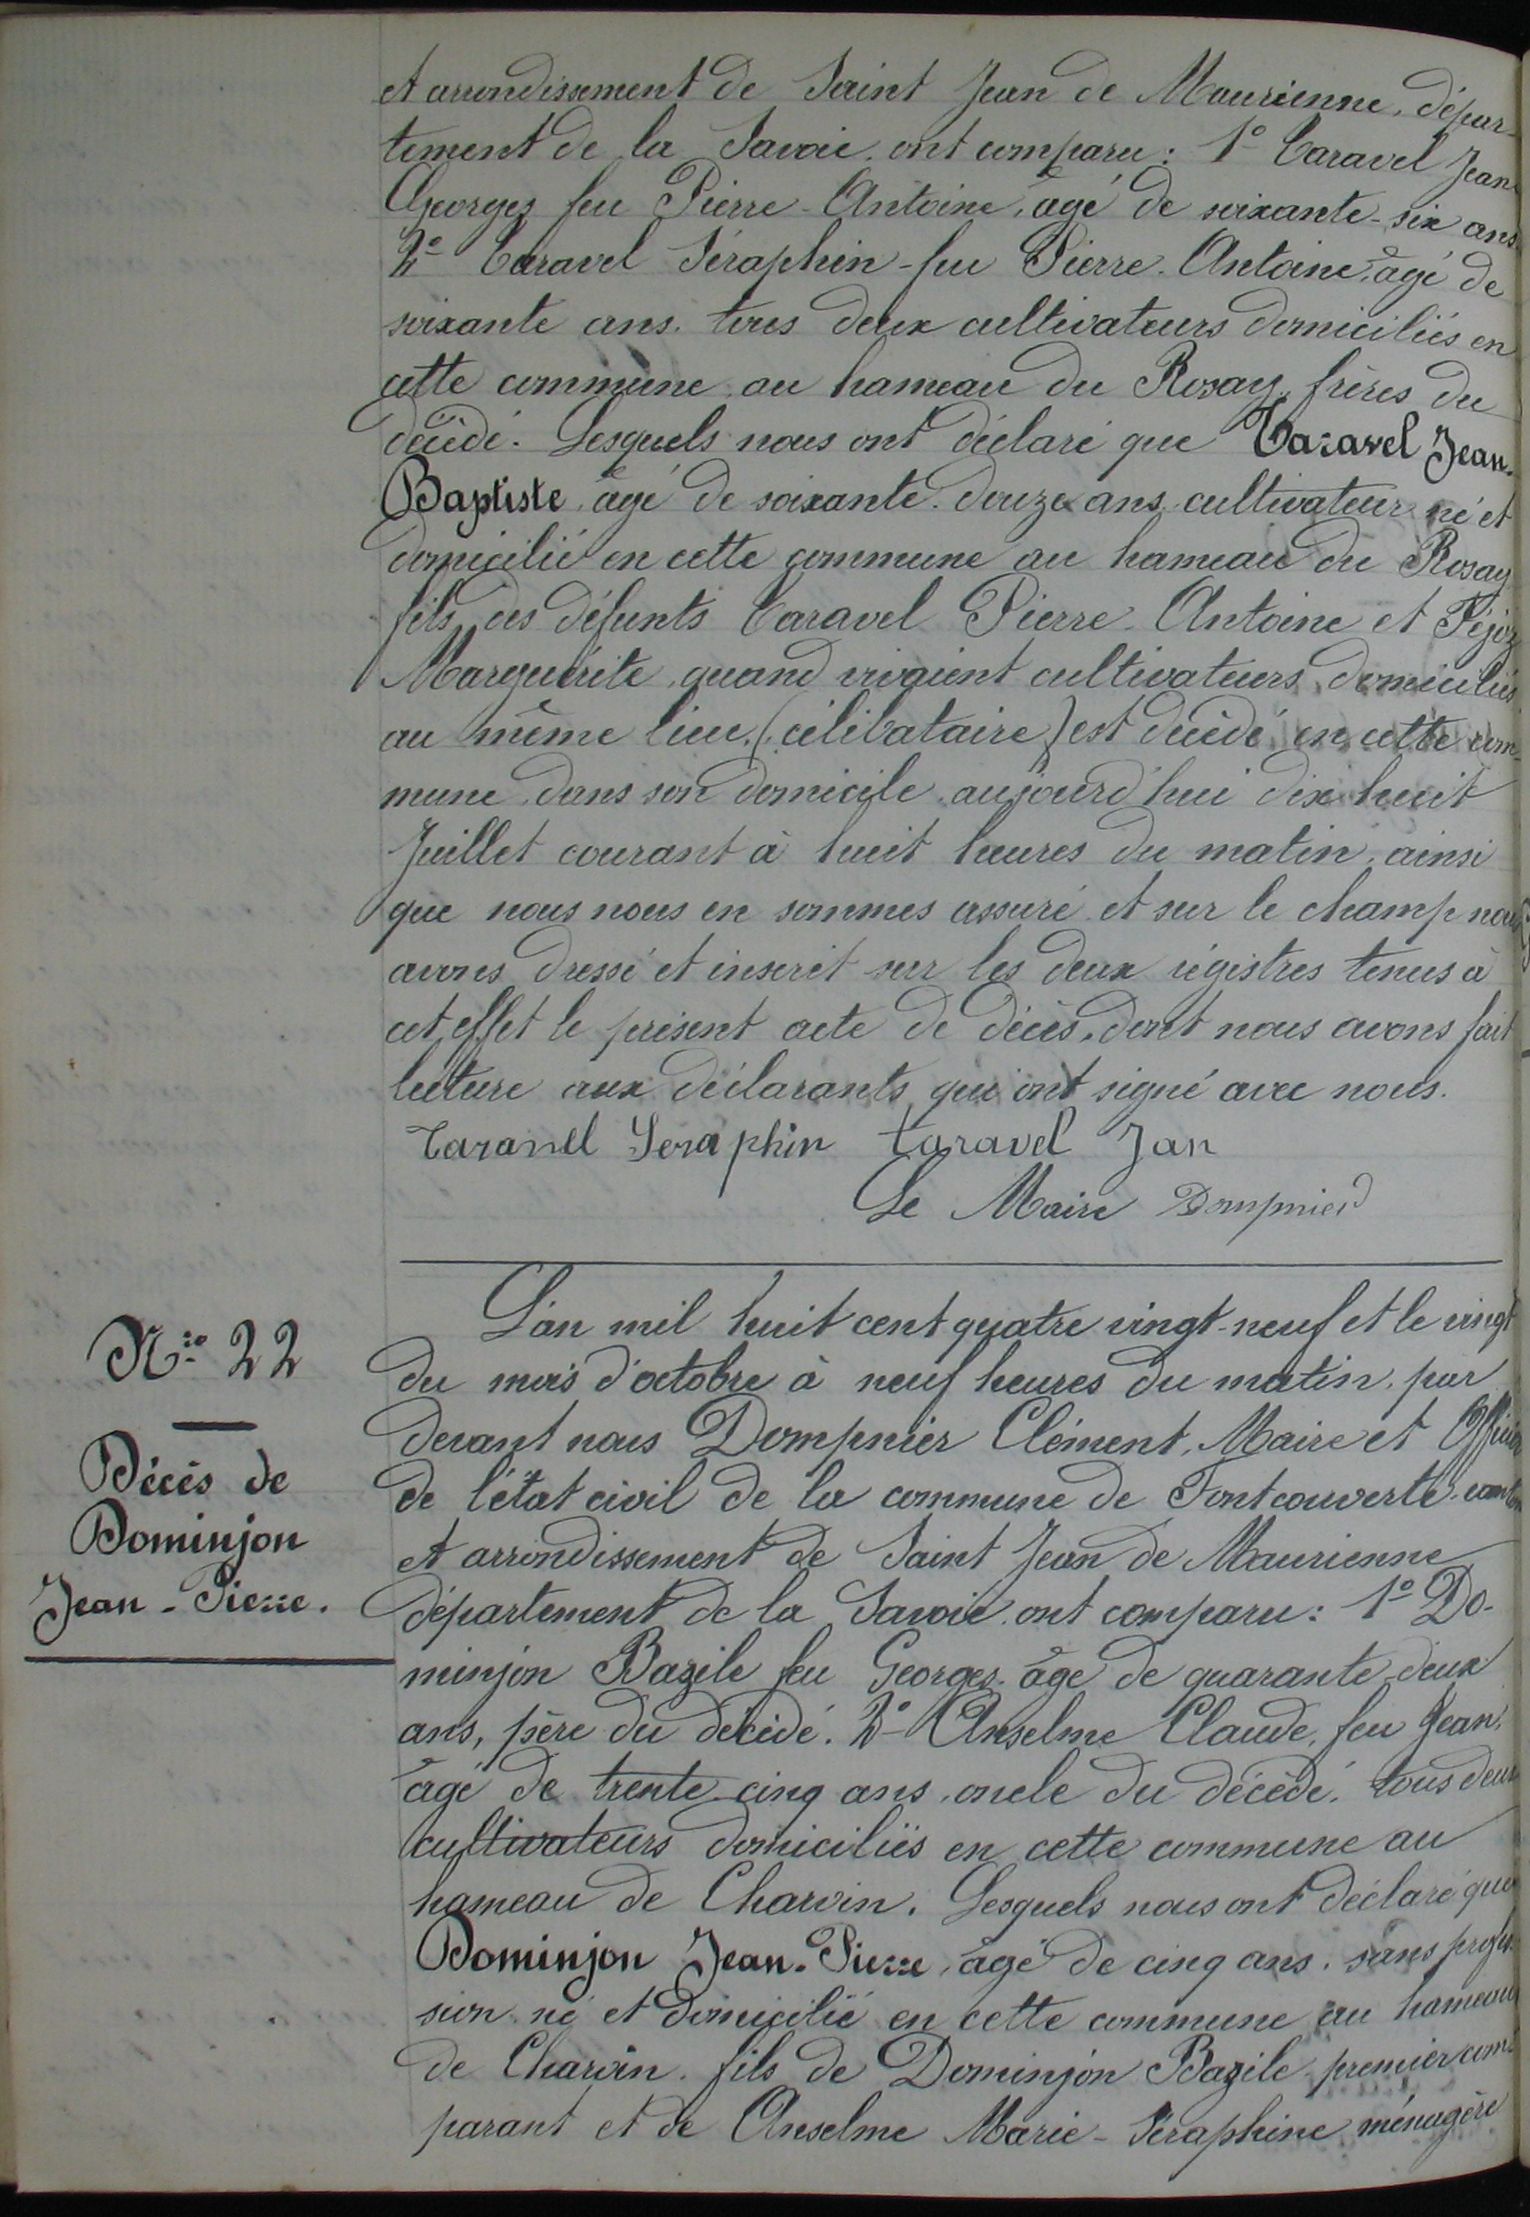 et arrondissement de Saint Jean de Maurienne, dépar-
tement de la Savoie. ont comparu : 1° Taravel Jean
Georges feu Pierre-Antoine, âgé de soixante-six ans
2° Taravel Séraphin-feu Pierre-Antoine, âgé de
soixante ans. tous deux cultivateurs domiciliés en
cette commune au hameau du Rosay, frères du
décédé. Lesquels nous ont déclaré que Taravel Jean-
Baptiste, âgé de soixante-douze ans, cultivateur né et
domicilié en cette commune au hameau du Rosay
fils des défunts Taravel Pierre-Antoine et Féjoz
Marguérite, quand vivaient cultivateurs, domiciliés
au même lieu, (célibataire) est décédé en cette com-
mune, dans son domicile aujourd'hui dix huit
Juillet courant à huit heures du matin, ainsi
que nous nous en sommes assuré et sur le champ nous
avons dressé et inscrit sur les deux régistres tenus à
cet effet le présent acte de décès, dont nous avons fait
lecture aux déclarants qui ont signé avec nous.
Taravel Seraphin Taravel Jan
Le Maire Dompnier
L'an mil huit cent quatre vingt-neuf et le vingt
du mois d'octobre à neuf heures du matin, par
devant nous Dompnier Clément, Maire et Officier
de l'état civil de la commune de Fontcouverte, canton
et arrondissement de Saint Jean de Maurienne
département de la Savoie ont comparu : 1° Do-
minjon Bazile feu Georges, âgé de quarante-deux
ans, père du décédé. 2° Anselme Claude, feu Jean,
âgé de trente-cinq ans, oncle du décédé, tous deux
cultivateurs domiciliés en cette commune au
hameau de Charvin. Lesquels nous ont déclaré que
Dominjon Jean-Pierre, âgé de cinq ans, sans profes-
sion né et domicilié en cette commune au hameau
de Charvin, fils de Dominjon Bazile premier com-
parant et de Anselme Marie-Séraphine ménagère
N.ro 22
Décès de
Dominjon
Jean-Pierre.